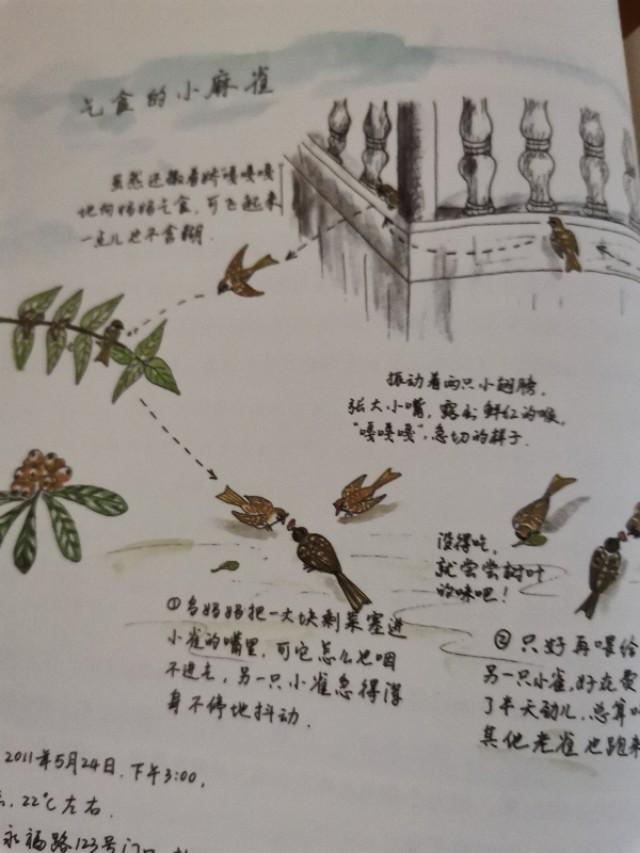 乞食的小麻雀
虽然还撒着娇嘎嘎嘎
地向妈妈乞食,可飞起来
一点儿也不含糊.
振动着两只小翅膀,
张大小嘴,露出鲜红的喉,
"嘎嘎嘎",急切的样子.
没得吃,
就尝尝树叶
的味吧!
①鸟妈妈把一大块剩菜塞进
小雀的嘴里,可它怎么也咽
不进去,另一只小雀急得浑
身不停地抖动.
②只好再喂给
另一只小雀,好在费
了半天劲儿,总算
其他老雀也跑来
2011年5月24日,下午3:00,
22℃左右.
永福路123号门口